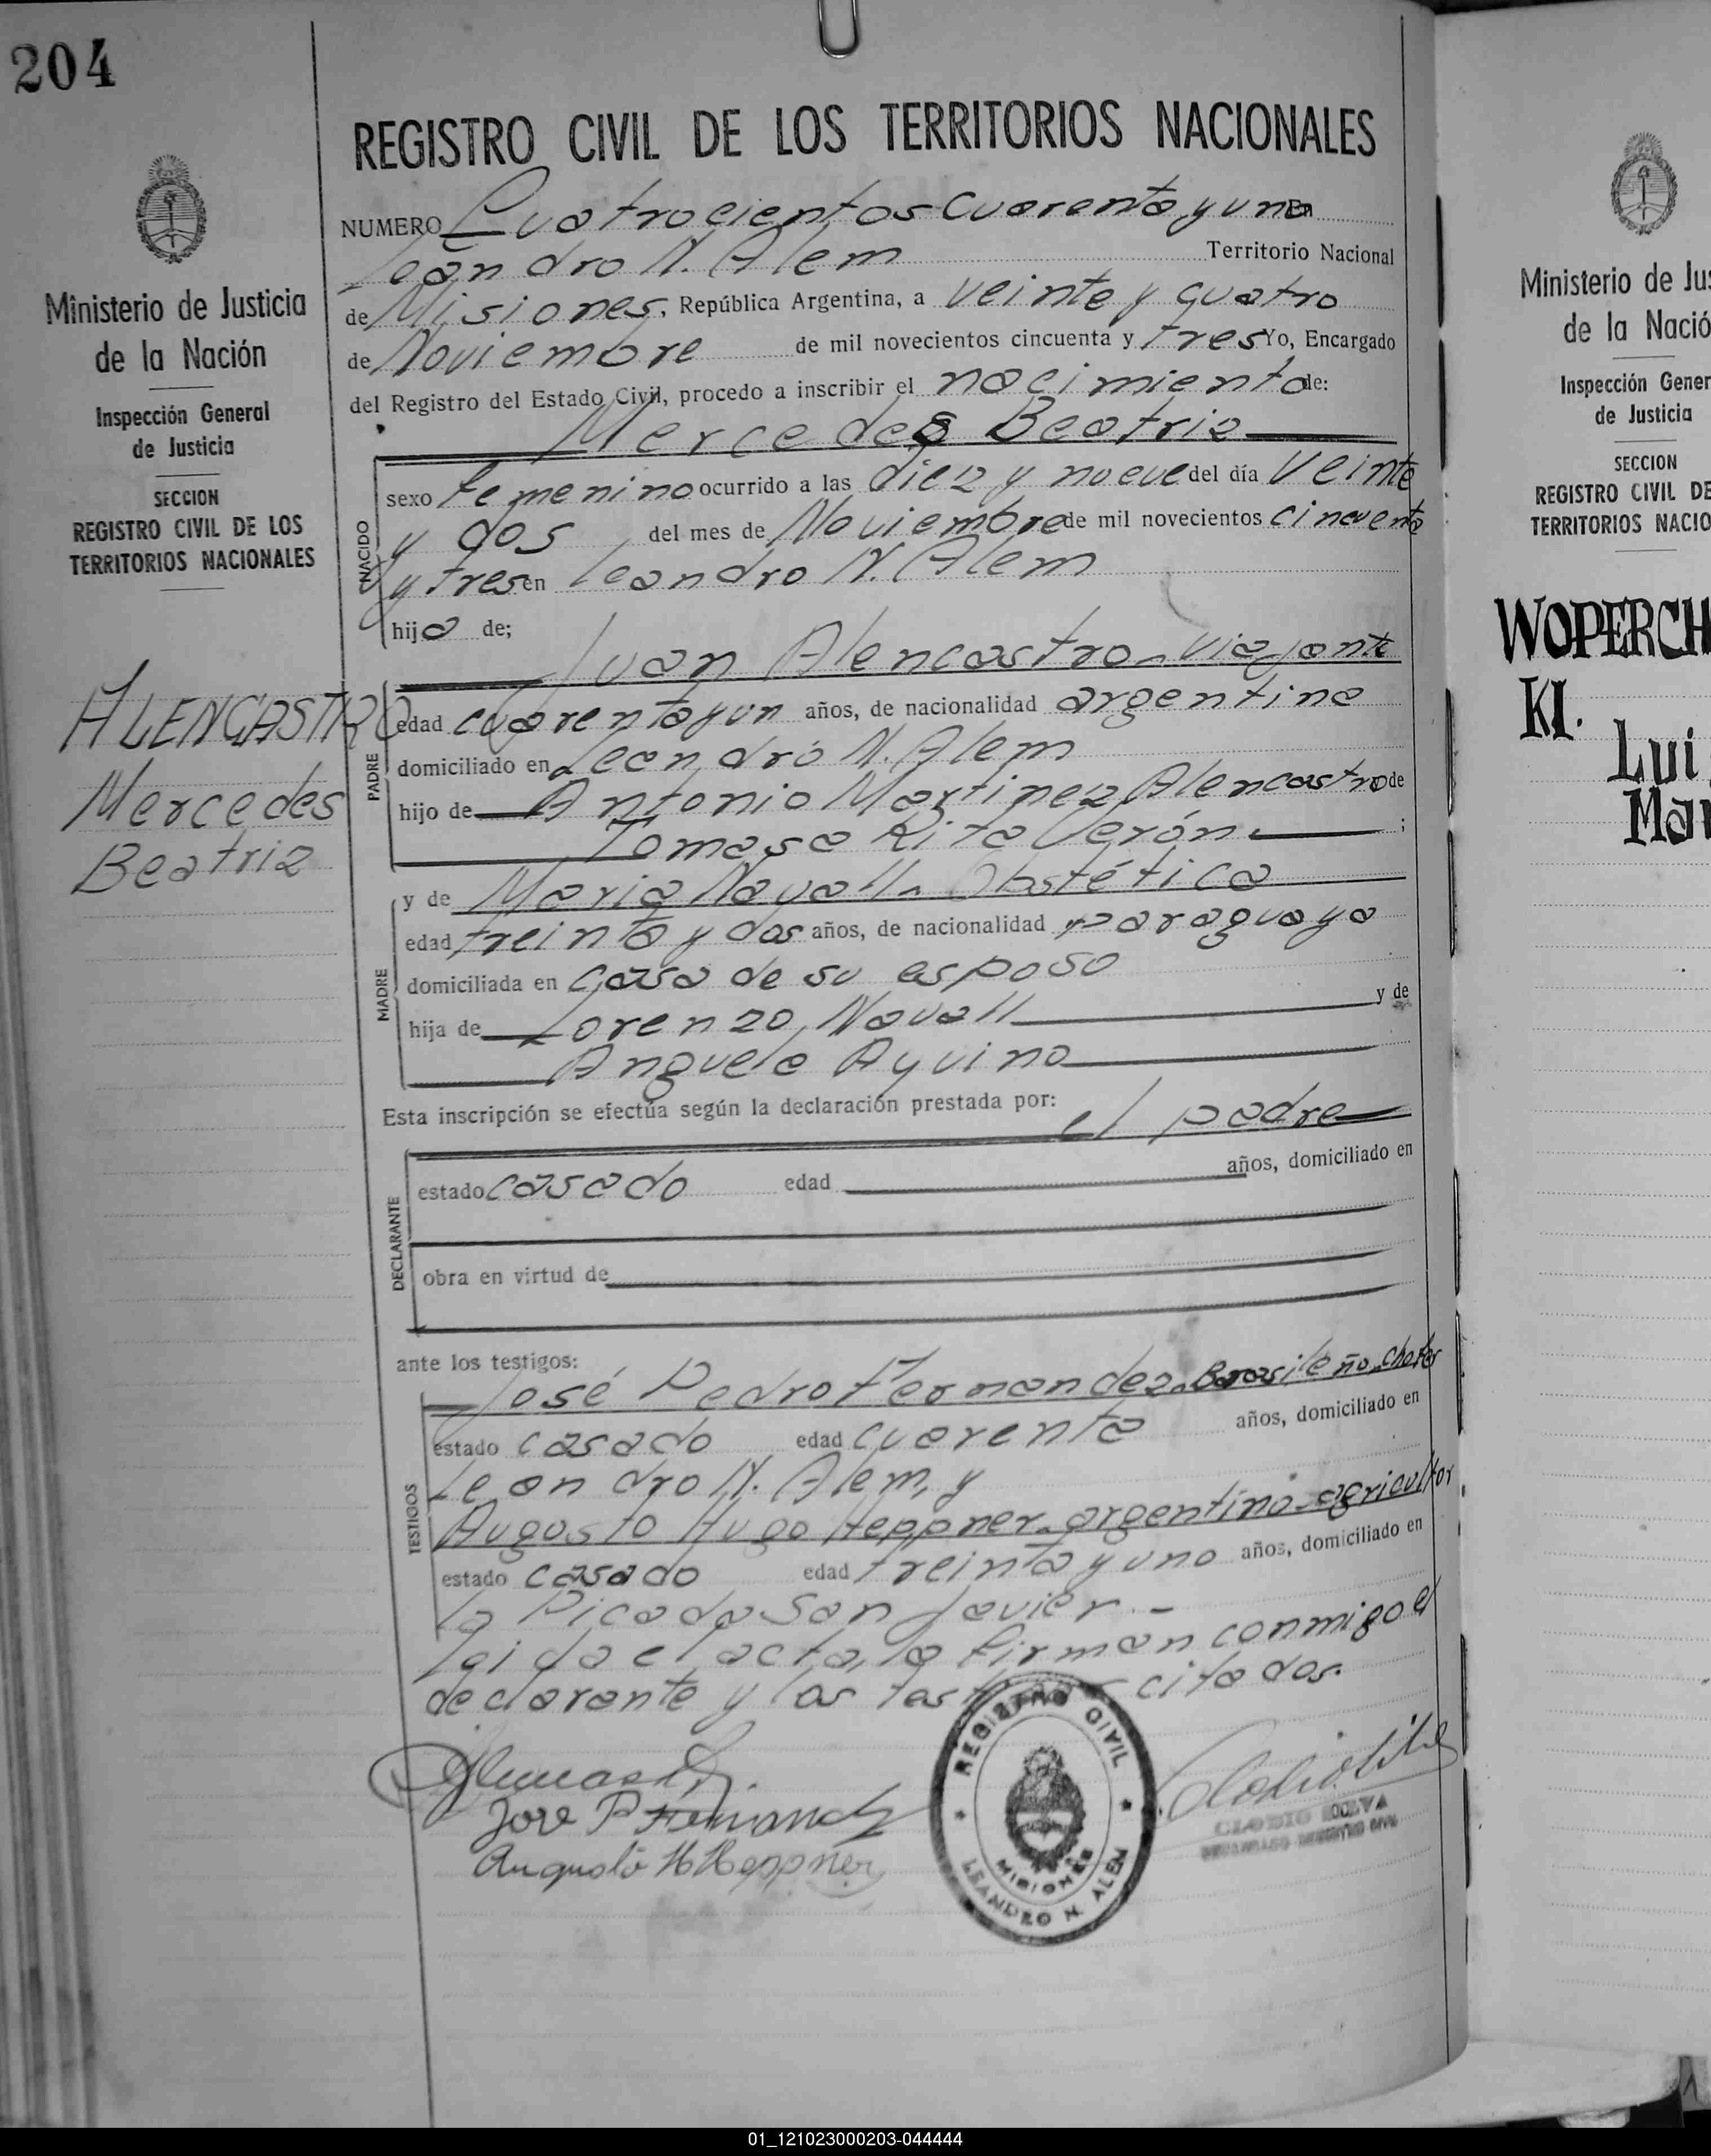 204
REGISTRO CIVIL DE LOS TERRITORIOS NACIONALES
Ministerio de Justicia
de la Nación
Inspección General
de Justicia
SECCION
REGISTRO CIVIL DE LOS
TERRITORIOS NACIONALES
ALENCASTRO
Mercedes
Beatriz
NUMERO Cuatrocientos cuarenta y uno En
Leandro N. Alem Territorio Nacional
de Misiones, República Argentina, a veinte y cuatro
de Noviembre de mil novecientos cincuenta y tres Yo, Encargado
del Registro del Estado Civil, procedo a inscribir el nacimiento de:
Mercedes Beatriz
NACIDO
sexo femenino ocurrido a las diez y nueve del día veinte
y dos del mes de Noviembre de mil novecientos cincuenta
y tres en Leandro N. Alem
hija de;
Juan Alencastro - viajante
PADRE
edad cuarenta y un años, de nacionalidad argentina
domiciliado en Leandro N. Alem
hijo de Antonio Martinez Alencastro de
Tomasa Rita Verón ;
MADRE
y de Maria Navall - Obstética
edad treinta y dos años, de nacionalidad paraguaya
domiciliada en casa de su esposo
hija de Lorenzo Navall y de
Anguela Aquino
Esta inscripción se efectúa según la declaración prestada por:
el padre
DECLARANTE
estado casado edad años, domiciliado en
obra en virtud de
ante los testigos:
TESTIGOS
José Pedro Fernandez - Brasileño - chofer
estado casado edad cuarenta años, domiciliado en
Leandro N. Alem, y
Augusto Hugo Heppner - argentino - agricultor
estado casado edad treinta y uno años, domiciliado en
la Picada San Javier. -
Leida el acta, la firman conmigo el
declarante y los testigos citados.
Jose P Fernandez
Augusto H Heppner
REGISTRO CIVIL
MISIONES
LEANDRO N. ALEM
CLODIO
ENCARGADO REGISTRO CIVIL
Ministerio de Jus
de la Nació
Inspección Gener
de Justicia
SECCION
REGISTRO CIVIL DE
TERRITORIOS NACIO
WOPERCH
KI.
Lui
Mar
01_121023000203-044444